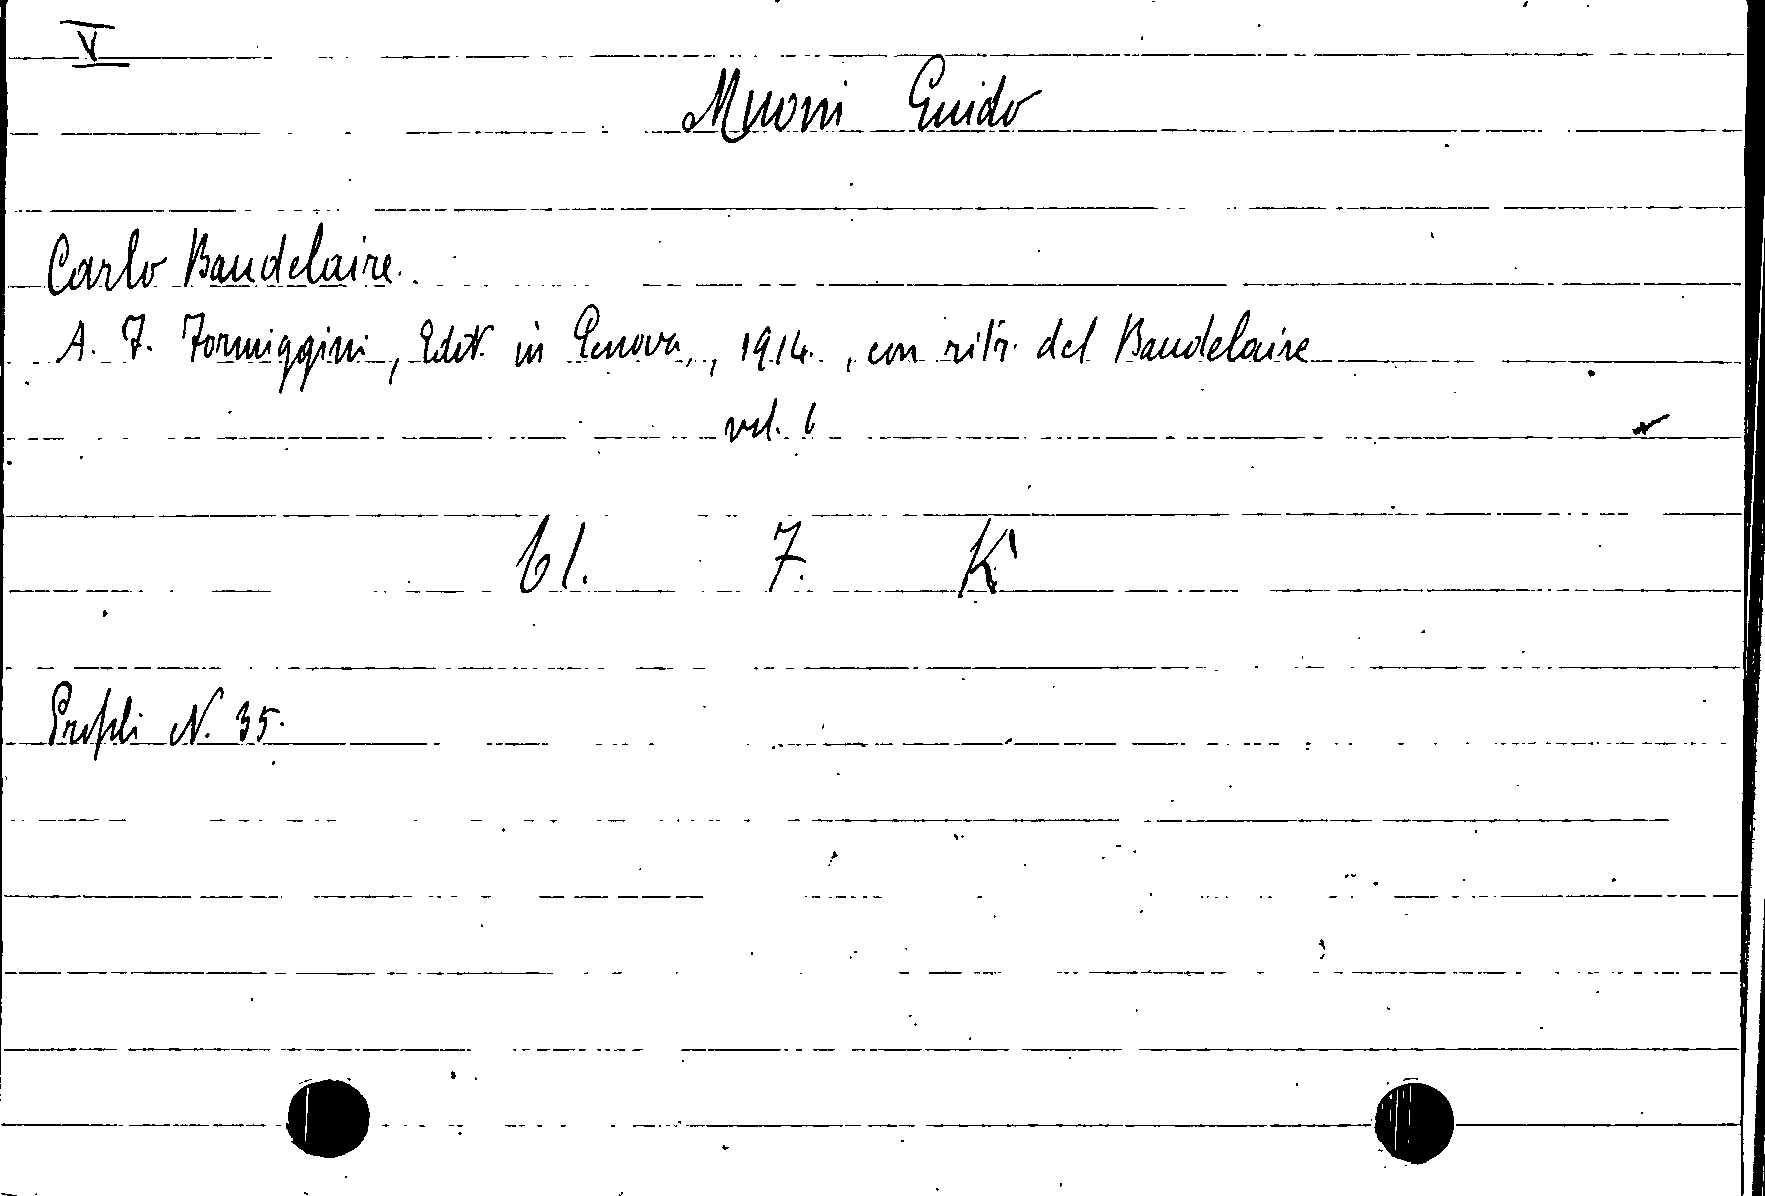 V
Muoni Guido
Carlo Baudelaire.
A. F. Formiggini, Edit. in Genova, 1914, con ritr. del Baudelaire
vol. 6
61. 7. K'
Profili N. 35.